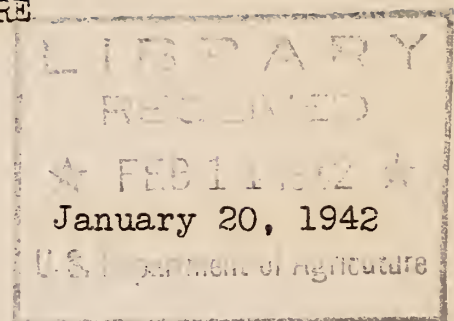 RE
LIBRARY
RECEIVED
★ FEB 11 1942 ★
January 20, 1942
U. S. Department of Agriculture